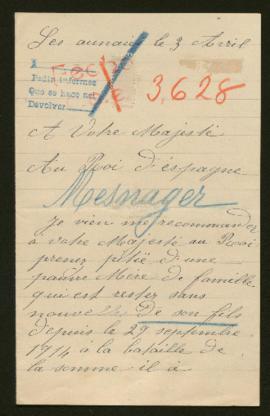 Les aunais le 3 Avril
Pedir informes
Que se hace ref
Devolver
3.628
A Votre Majesté
Au Roi d'éspagne
Mesnager
Je vien me recommander
a votre Majesté au Roi
prenez pitiée d'une
pauvre Mère de famille
qui est restez sans
nouvelle de son fils
depuis le 29 septembre
1914 à la bataille de
la somme il à